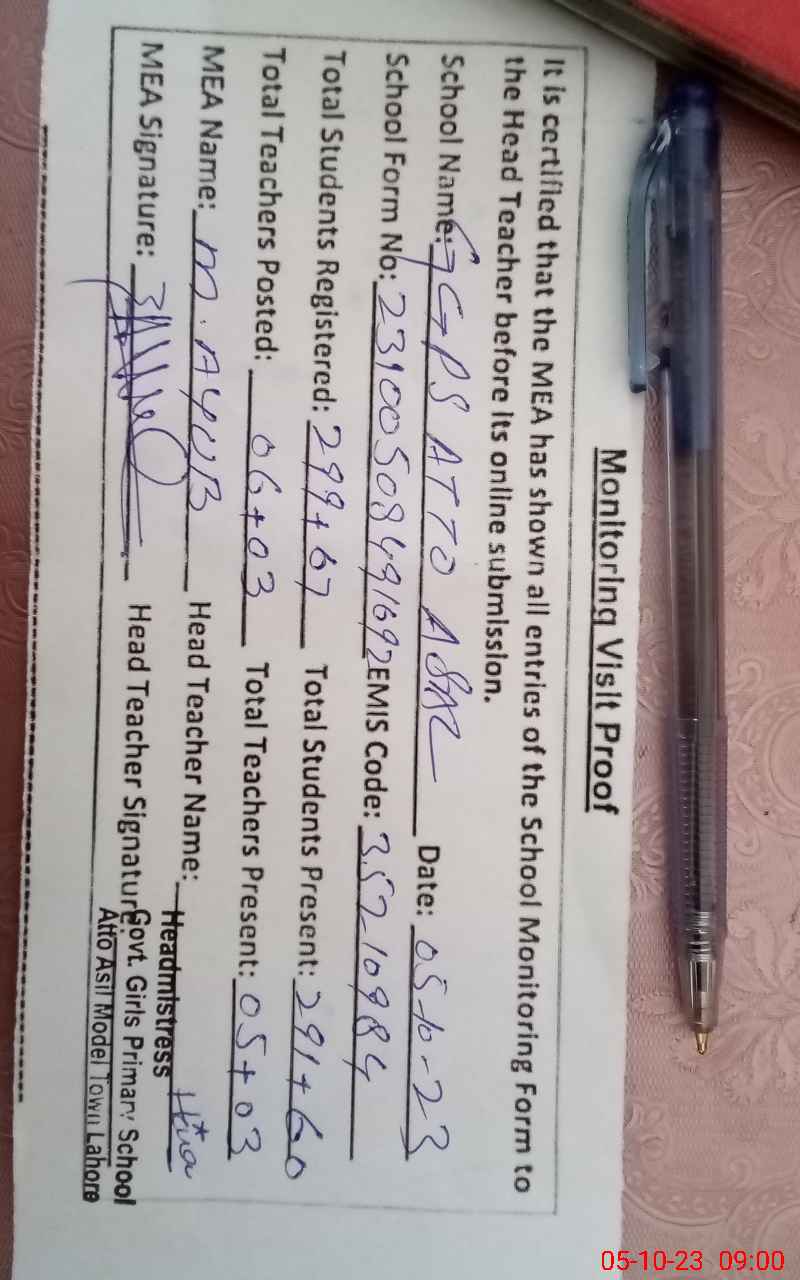 Monitoring Visit Proof
It is certified that the MEA has shown all entries of the School Monitoring Form to
the Head Teacher before its online submission.
School Name: GGPS ATTO ASAL Date: 05-10-23
School Form No: 2310050849 1692 EMIS Code: 35210984
Total Students Registered: 299+67 Total Students Present: 291+60
Total Teachers Posted: 06+03 Total Teachers Present: 05+03
MEA Name: M. AYUB Head Teacher Name: Hira
MEA Signature: Head Teacher Signature:
Headmistress
Govt. Girls Primary School
Atto Asil Model Town Lahore
05-10-23 09:00